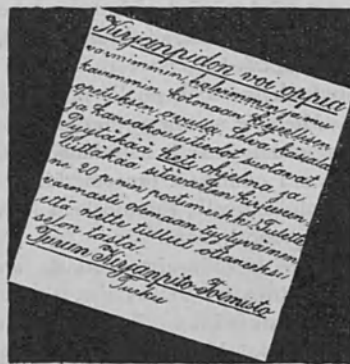 Kirjanpidon voi oppia
varmimmin, halvimmin ja mu
kavimmin kotonaan kirjeellisen
opetuksen avulla. Hyvä käsiala
ja kansakoulutiedot suotavat
Pyytäkää heti ohjelma ja
liittäkää sitävarten kirjeesen
ne 20 p:nin postimerkki. Tulette
varmasti olemaan tyytyväinen
että olette tullut ottaneeksi
selon tästä.
Turun Kirjanpito-Toimisto
Turku